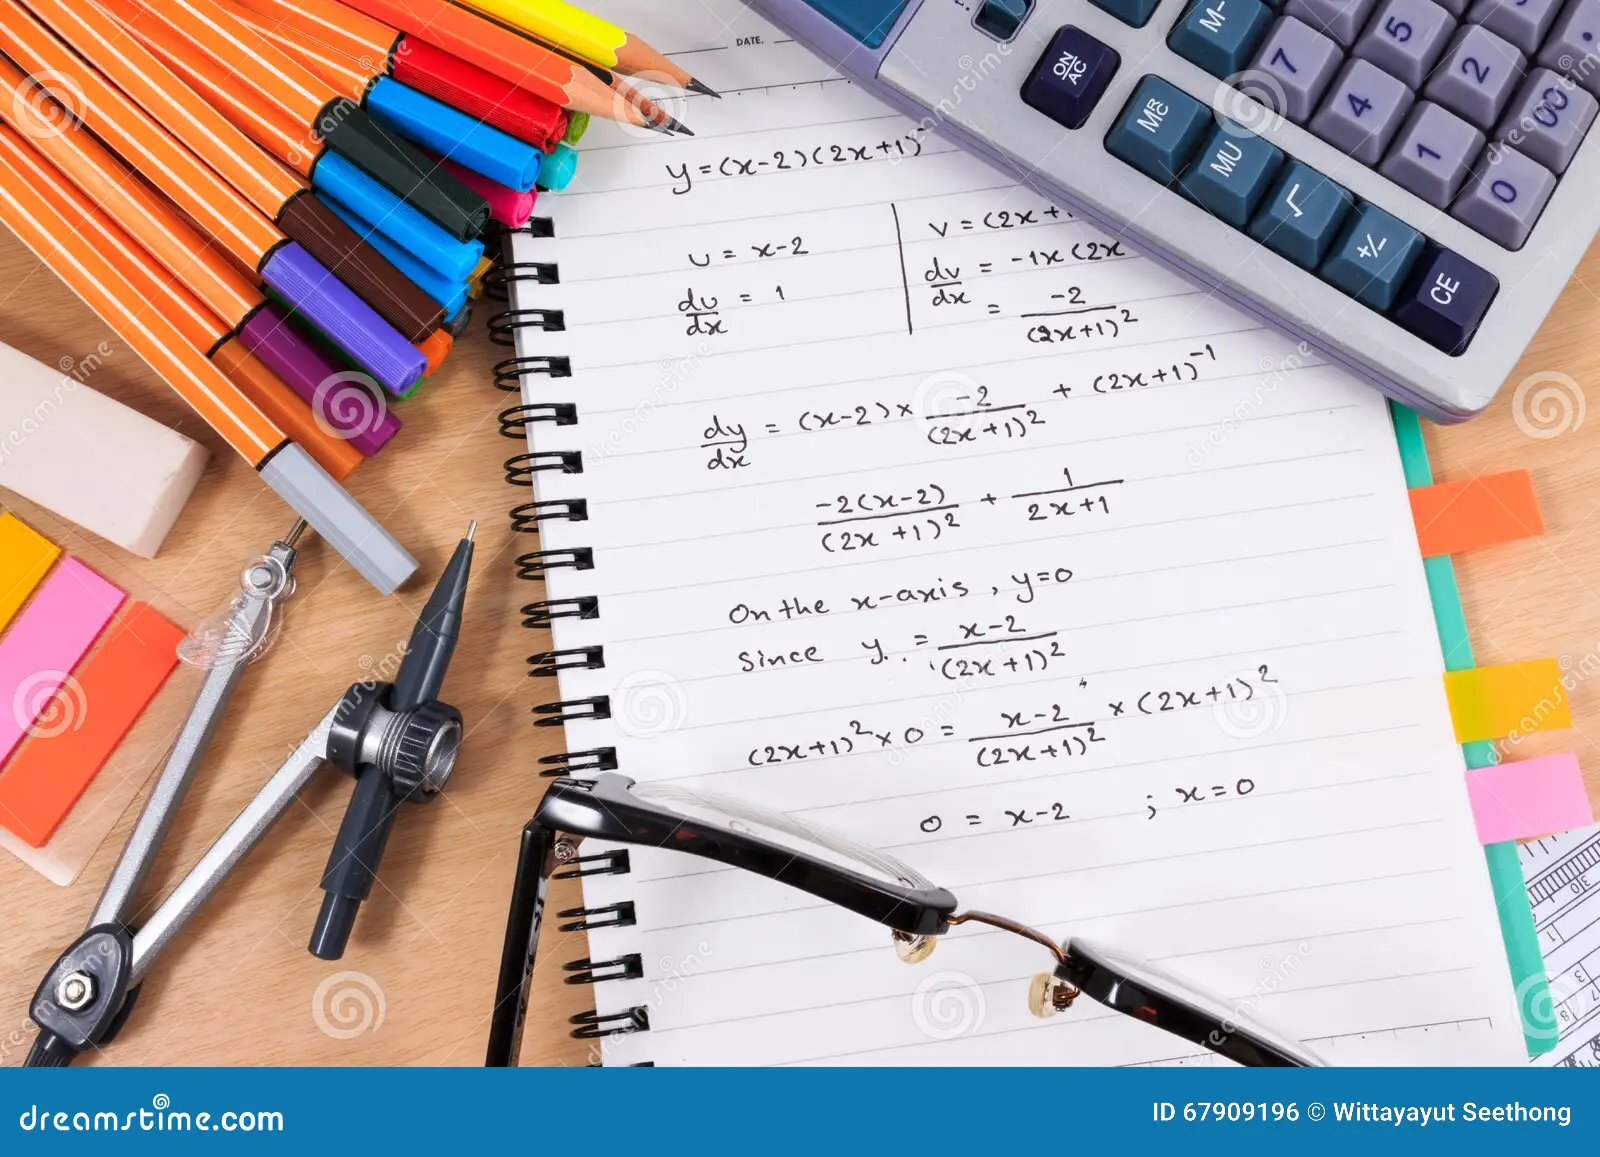 DATE.
y = (x-2)(2x+1)⁻
u = x-2
du/dx = 1
v = (2x+1
dv/dx = -1x(2x
= -2/(2x+1)²
dy/dx = (x-2) x -2/(2x+1)² + (2x+1)⁻¹
-2(x-2)/(2x+1)² + 1/(2x+1)
On the x-axis, y=0
Since y = x-2/(2x+1)²
(2x+1)² x 0 = x-2/(2x+1)² x (2x+1)²
0 = x-2 ; x=0
ON/AC
M-
MRC
MU
√
+/-
CE
7
4
1
0
5
2
00
.
dreamstime.com
ID 67909196 © Wittayayut Seethong